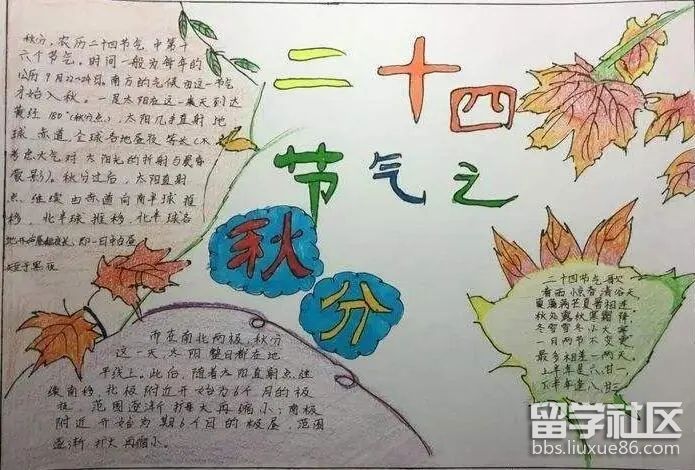 二十四
节气之
秋分
秋分,农历二十四节气中第十
六个节气,时间一般为每年的
公历9月22~24日。南方的气候由这一节气
才始入秋。一是太阳在这一天到达
黄经180°(秋分点),太阳几乎直射地
球赤道,全球各地昼夜等长(不
考虑大气对太阳光的折射与晨昏
蒙影)。秋分过后,太阳直射
点继续由赤道向南半球推
移,北半球各
地开始昼短夜长,即一日中白昼
短于黑夜
而在南北两极,秋分
这一天,太阳整日都在地
平线上。此后,随着太阳直射点继
续南移,北极附近开始为期6个月的极
夜,范围逐渐扩大再缩小;南极
附近开始为期6个月的极昼,范围
逐渐扩大再缩小。
二十四节气歌
春雨惊春清谷天
夏满芒夏暑相连
秋处露秋寒霜降
冬雪雪冬小大寒
一日两节不变更
最多相差一两天
上半年是六廿一
下半年是八廿三
留学社区
bbs.liuxue86.com